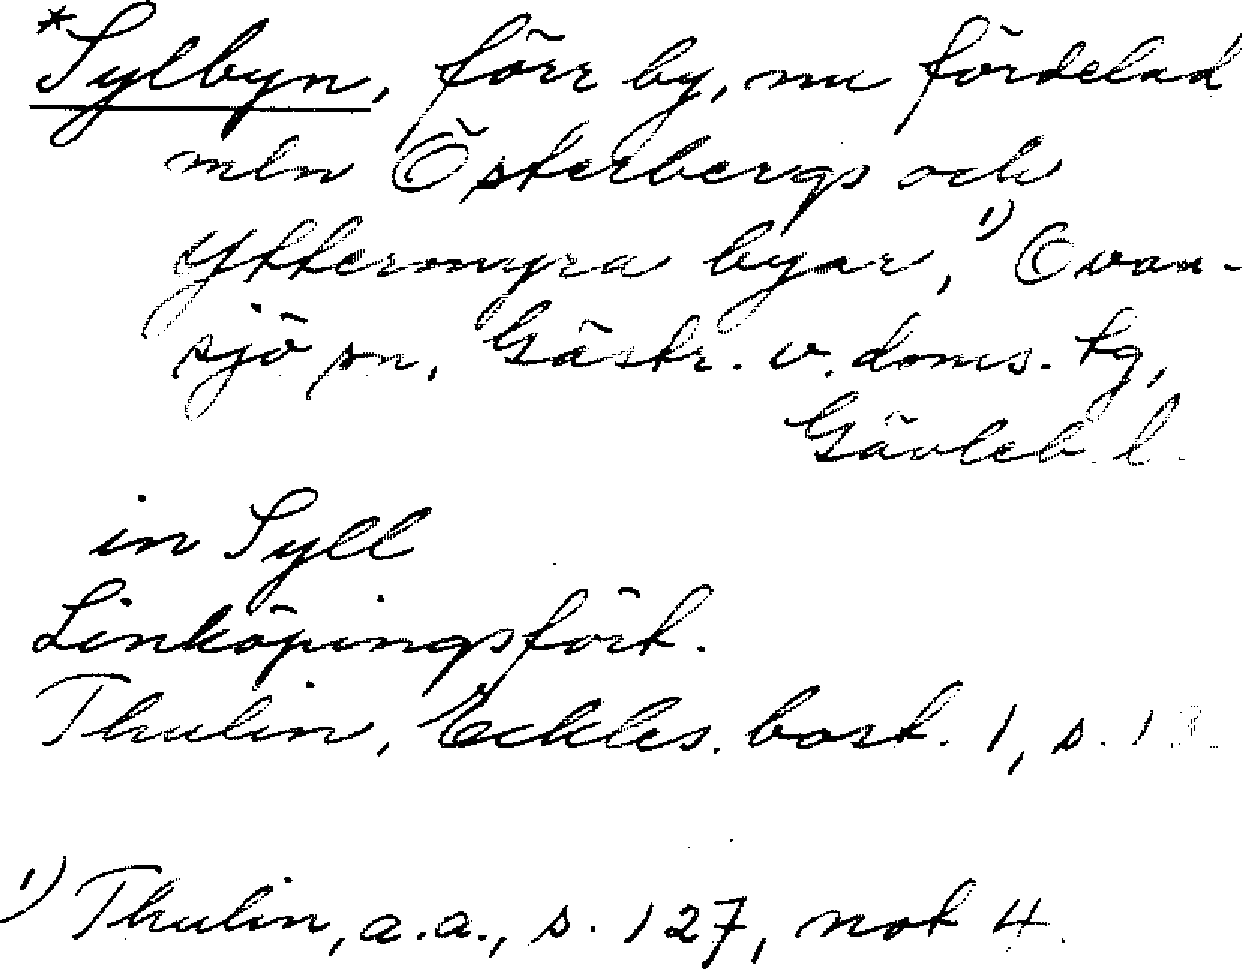 *Sylbyn, förr by, nu fördelad
mln Österbergs och
Yttermyra byar,¹⁾ Ovan-
sjö sn, Gästr. v. doms. tg,
Gävleb. l.
in Syll
Linköpingsfört.
Thulin, Eckles. bost. 1, s.
¹⁾ Thulin, a.a., s. 127, not 4.